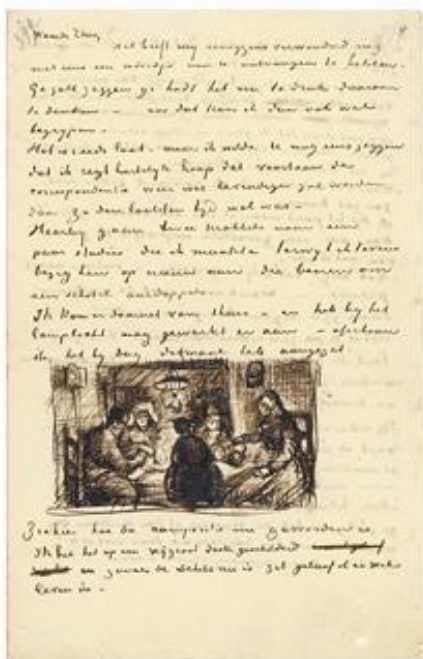 Waarde Theo,
Het heeft mij eenigzins verwonderd nog
niet eens een woordje van U ontvangen te hebben.
Ge zult zeggen ge hadt het te druk daaraan
te denken – en dat kan ik dan ook wel
begrijpen –
Het is reeds laat – maar ik wilde U nog eens zeggen
dat ik regt hartelijk hoop dat voortaan de
correspondentie weer wat levendiger zal worden
dan ze den laatsten tijd wel was –
Hierby gaan twee krabbels naar een
paar studies die ik maakte terwyl ik tevens
bezig ben op nieuw aan die boeren om
een schotel aardappels
Ik kom er daarnet van thuis – en heb by het
lamplicht nog gewerkt er aan – ofschoon
ik het by dag ditmaal heb aangezet
Ziehier hoe de compositie nu geworden is.
Ik heb het op een vrij groot doek geschilderd
en zooals de schets nu is zit geloof ik er wel
leven in –